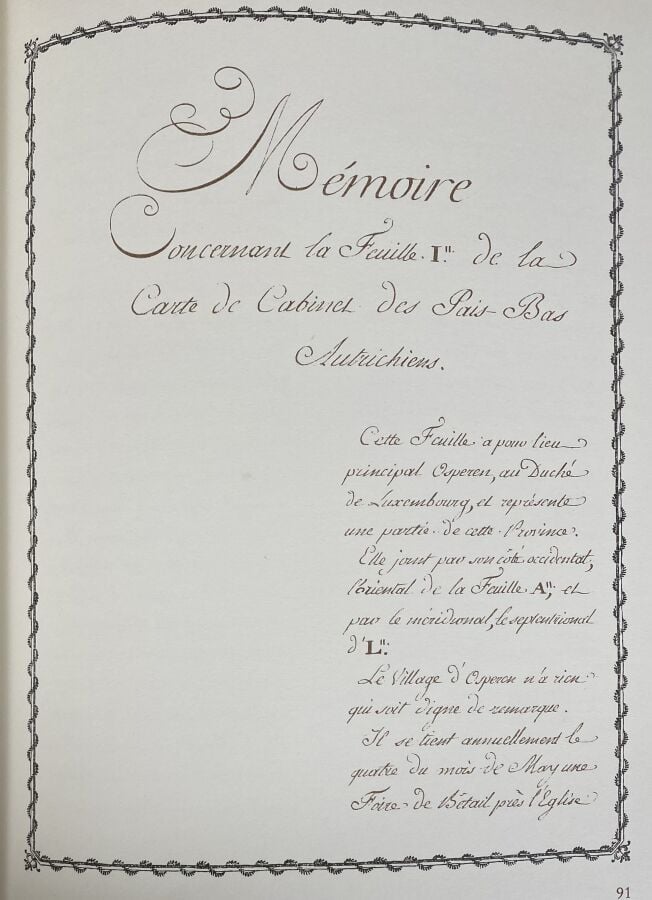 Mémoire
Concernant la Feuille I.ᴵᴵ de la
Carte de Cabinet des Païs-Bas
Autrichiens.
Cette Feuille a pour lieu
principal Osperen, au Duché
de Luxembourg, et représente
une partie de cette Province.
Elle joint par son côté occidental,
l'oriental de la Feuille Aᴵᴵ, et
par le méridional, le septentrional
d'Lᴵᴵ.
Le Village d'Osperen n'a rien
qui soit digne de remarque.
Il se tient annuellement le
quatre du mois de May une
Foire de Bétail près l'Eglise
91